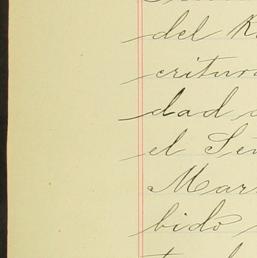 del R
critura
dad
el Señ
Mar
bido